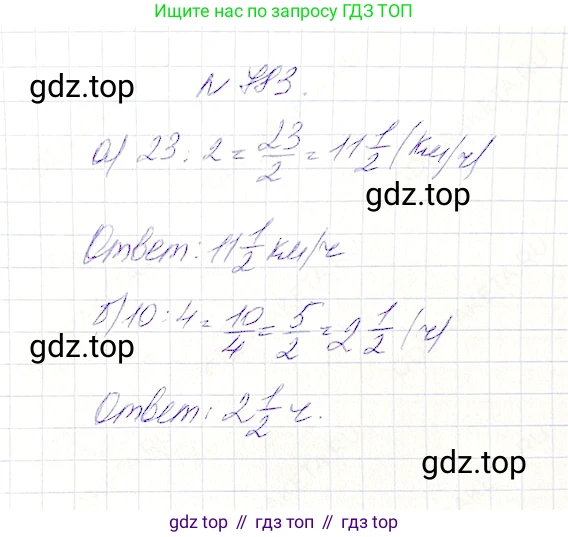 Ищите нас по запросу ГДЗ ТОП
N 983.
gdz.top
а) 23 : 2 = 23/2 = 11 1/2 (км/ч)
gdz.top
Ответ: 11 1/2 км/ч
б) 10 : 4 = 10/4 = 5/2 = 2 1/2 (ч)
gdz.top
Ответ: 2 1/2 ч.
gdz.top
gdz top // гдз топ // gdz.top